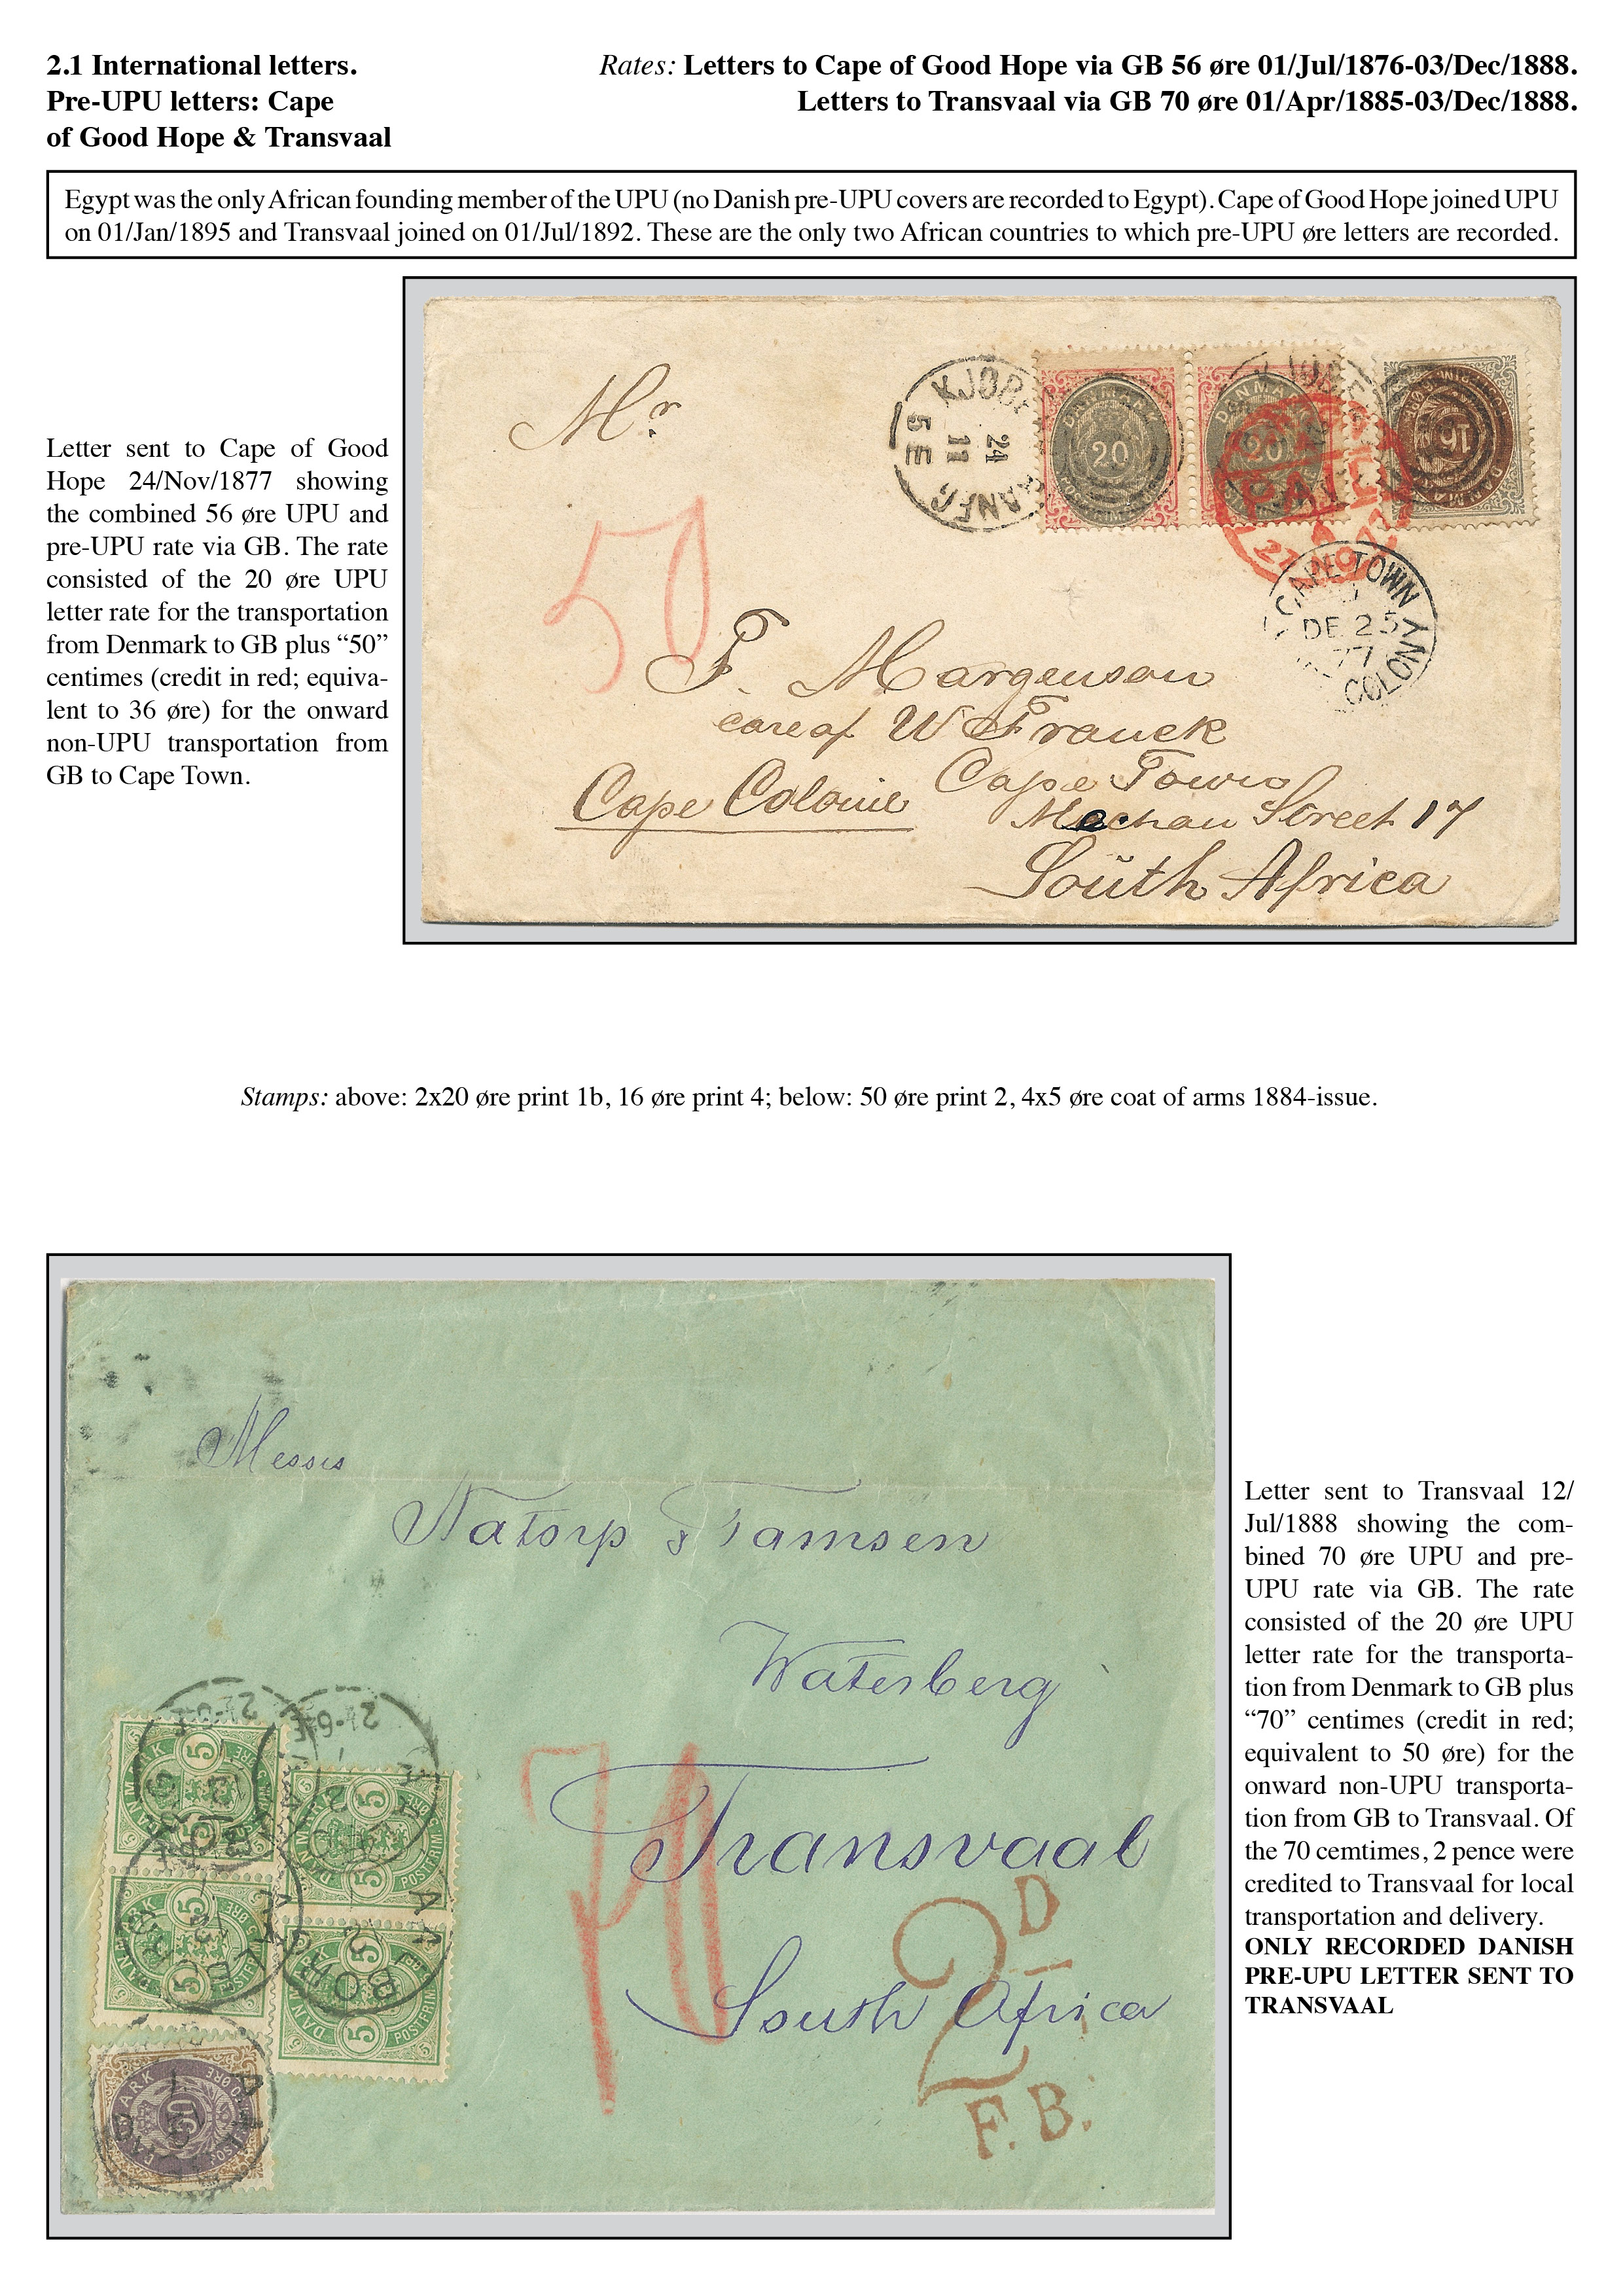 2.1 International letters.
Pre-UPU letters: Cape
of Good Hope & Transvaal
Rates: Letters to Cape of Good Hope via GB 56 øre 01/Jul/1876-03/Dec/1888.
Letters to Transvaal via GB 70 øre 01/Apr/1885-03/Dec/1888.
Egypt was the only African founding member of the UPU (no Danish pre-UPU covers are recorded to Egypt). Cape of Good Hope joined UPU
on 01/Jan/1895 and Transvaal joined on 01/Jul/1892. These are the only two African countries to which pre-UPU øre letters are recorded.
Letter sent to Cape of Good
Hope 24/Nov/1877 showing
the combined 56 øre UPU and
pre-UPU rate via GB. The rate
consisted of the 20 øre UPU
letter rate for the transportation
from Denmark to GB plus “50”
centimes (credit in red; equiva-
lent to 36 øre) for the onward
non-UPU transportation from
GB to Cape Town.
Mr
KJØB
24
11
5 E
DANMARK
20
20
16
PAID
50
CAPE TOWN
DE 25
77
COLONY
F. Morgenson
care of W Franck
Cape Town
Cape Colonie
Street 17
South Africa
Stamps: above: 2x20 øre print 1b, 16 øre print 4; below: 50 øre print 2, 4x5 øre coat of arms 1884-issue.
Messrs
Natorp & Tamsen
Waterberg
Transvaal
South Africa
70
2D
2
F.B.
DANMARK
5
POSTFRIM
5 ØRE
AALBORG
50
Letter sent to Transvaal 12/
Jul/1888 showing the com-
bined 70 øre UPU and pre-
UPU rate via GB. The rate
consisted of the 20 øre UPU
letter rate for the transporta-
tion from Denmark to GB plus
“70” centimes (credit in red;
equivalent to 50 øre) for the
onward non-UPU transporta-
tion from GB to Transvaal. Of
the 70 cemtimes, 2 pence were
credited to Transvaal for local
transportation and delivery.
ONLY RECORDED DANISH
PRE-UPU LETTER SENT TO
TRANSVAAL